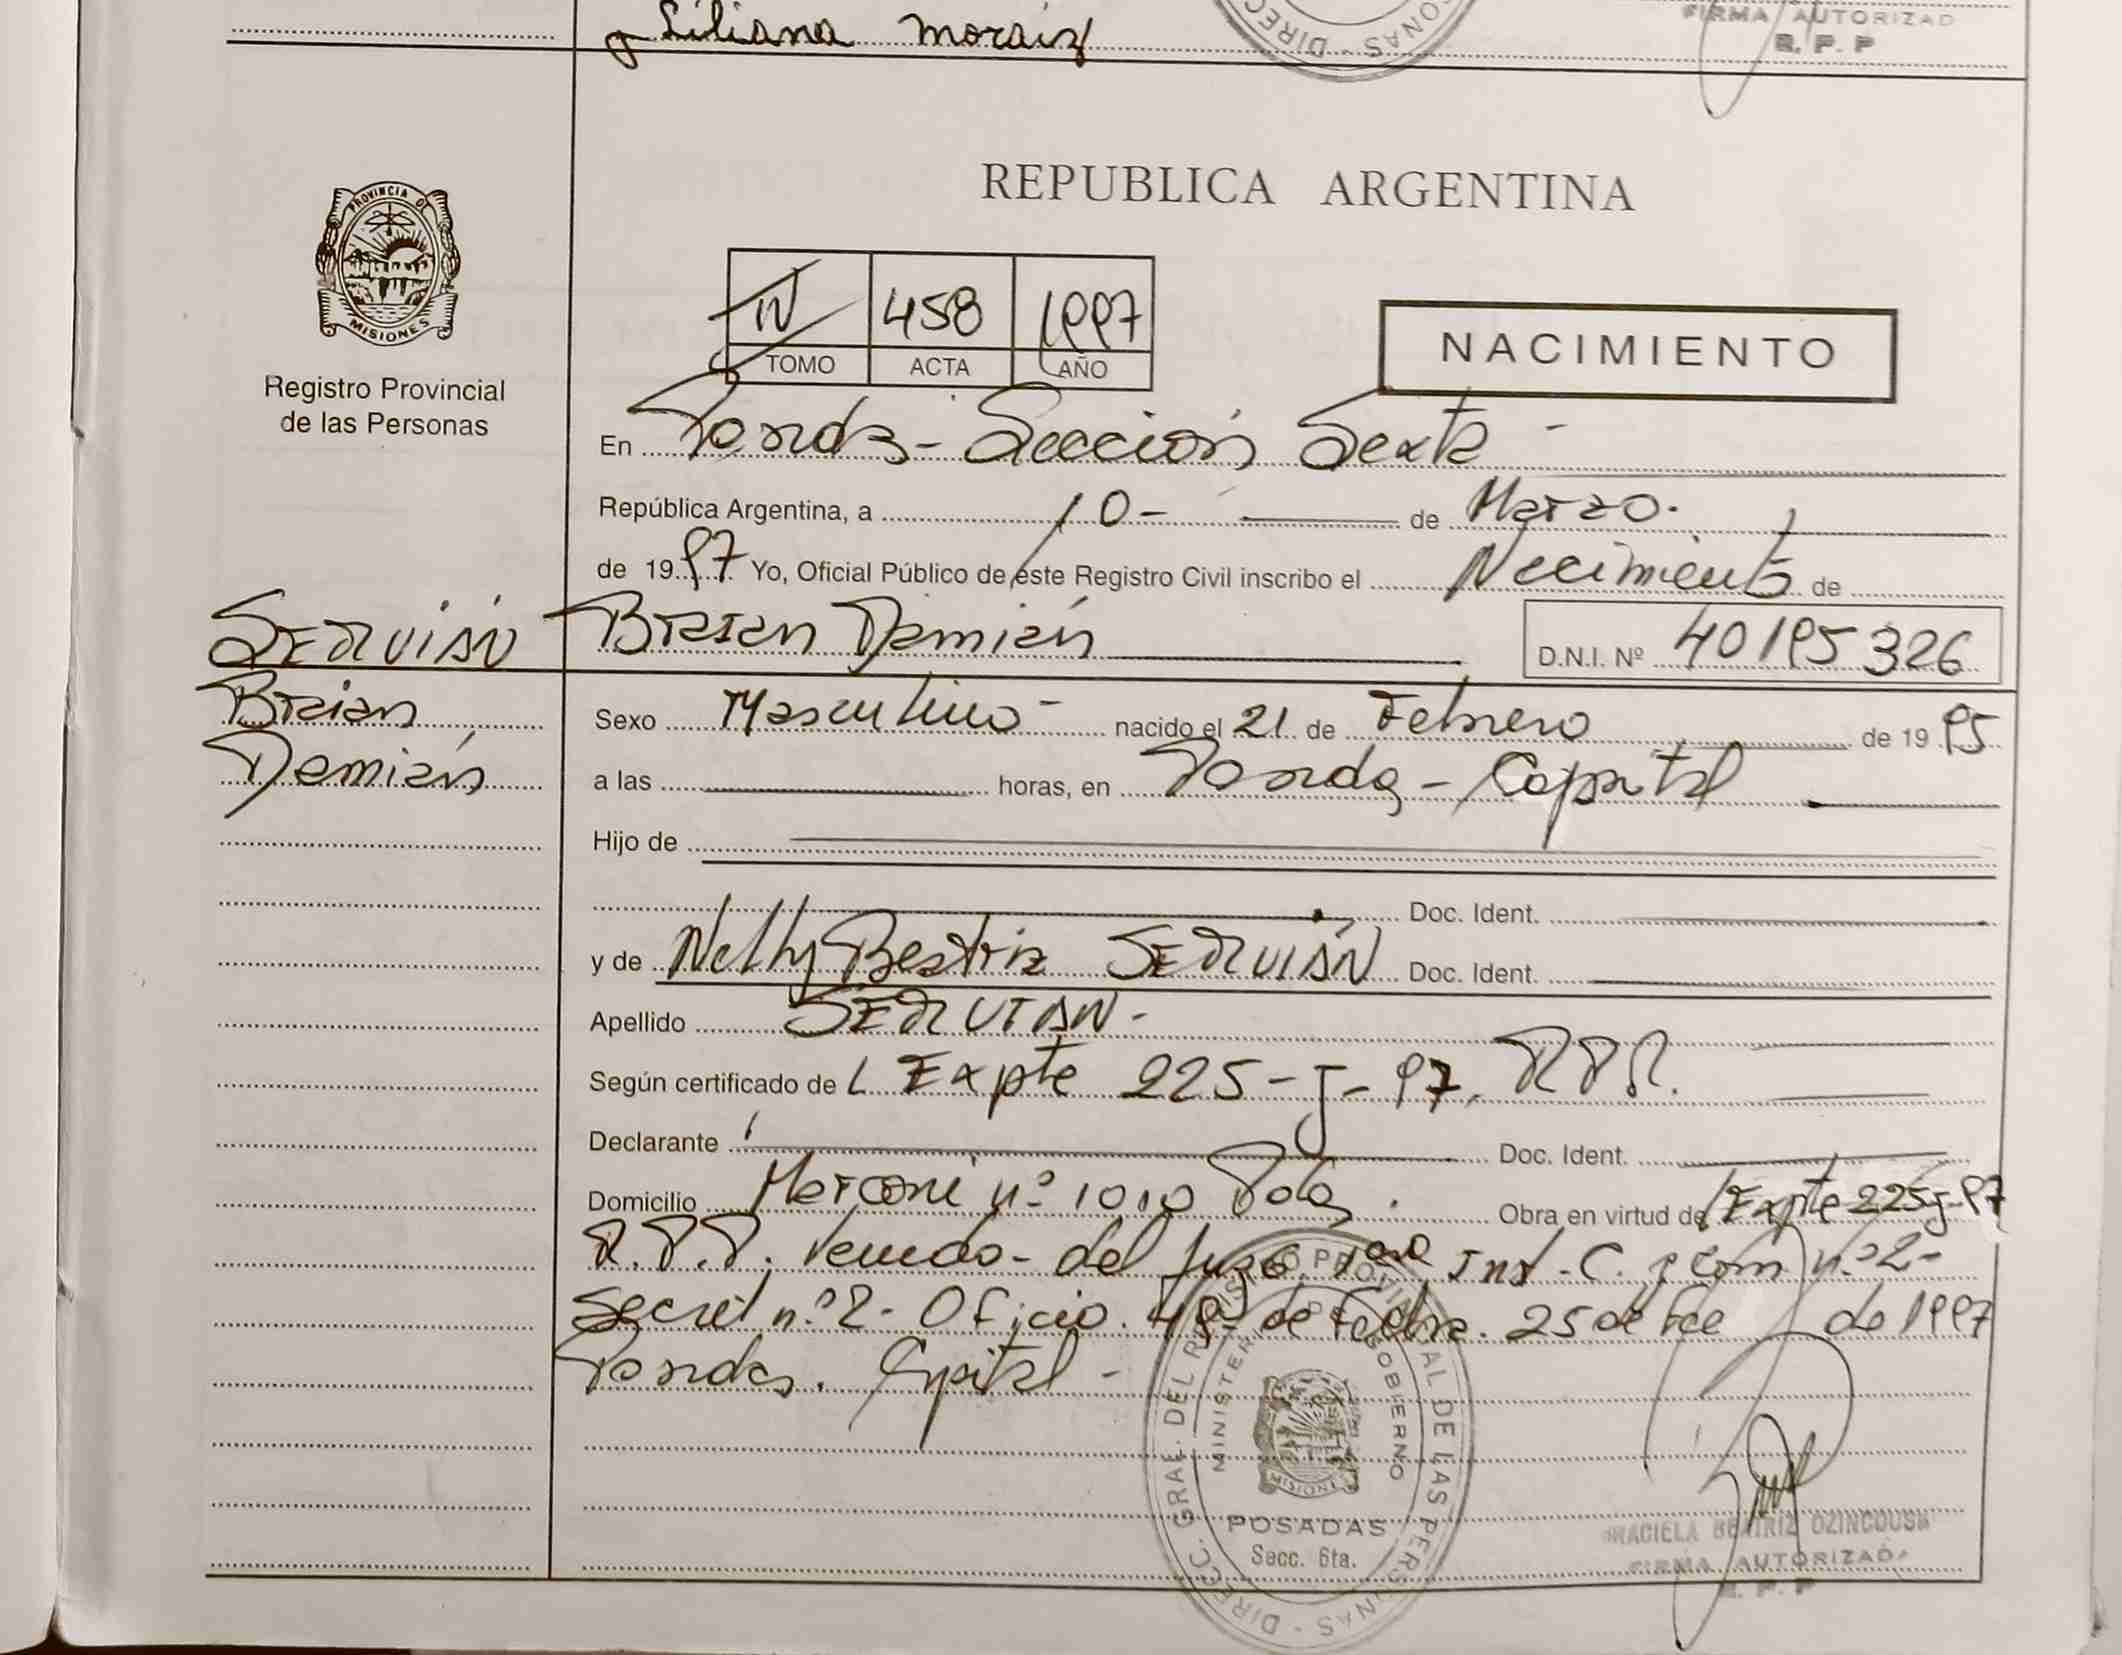 y Liliana Moraiz
FIRMA AUTORIZAD
R. P. P
PROVINCIA DE
MISIONES
Registro Provincial
de las Personas
REPUBLICA ARGENTINA
IV 458 1997
TOMO ACTA AÑO
NACIMIENTO
En Posadas - Sección Sexta -
República Argentina, a 10 - de Marzo.
de 1997 Yo, Oficial Público de este Registro Civil inscribo el Nacimiento de
SERVIÁN Brian Damián D.N.I. Nº 40195326
Brian
Damián
Sexo Masculino - nacido el 21 de Febrero de 1995
a las horas, en Posadas - Capital
Hijo de
Doc. Ident.
y de Nelly Beatriz SERVIÁN Doc. Ident.
Apellido SERVIAN -
Según certificado de Expte 225 - J - 97. R.P.P.
Declarante Doc. Ident.
Domicilio Marconi nº 1010 Obra en virtud de Expte 225-J-97
R.P.P. venido - del Juzg. 1era Inst - C. y Com nº 2 -
Secret nº 2 - Oficio. 48 de Fecha. 25 de de 1997
Posadas. Capital -
DIREC. GRAL. DEL REGISTRO PROVINCIAL DE LAS PERSONAS
MINISTERIO DE GOBIERNO
MISIONES
POSADAS
Secc. 6ta.
GRACIELA BEATRIZ
FIRMA AUTORIZADA
R. P. P